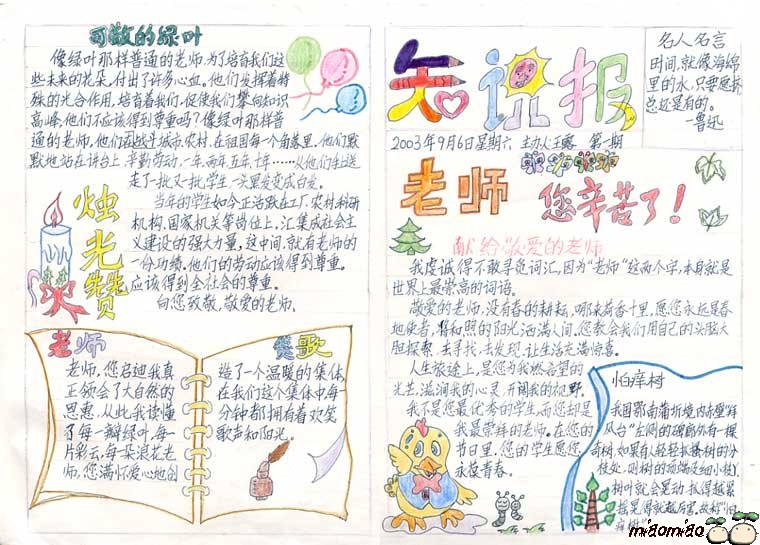 可敬的绿叶
像绿叶那样普通的老师,为了培育我们这
些未来的花朵,付出了许多心血。他们发挥着特
殊的光合作用,培育着我们,促使我们攀向知识
高峰,他们不应该得到尊重吗?像绿叶那样普
通的老师,他们在城市、农村,在祖国每一个角落里。他们默
默地站在讲台上,辛勤劳动,一年,两年,五年,十年……从他们手上送
走了一批又一批学生,一头黑发变成白发。
当年的学生如今正活跃在工厂、农村、科研
机构、国家机关等岗位上,汇集成社会主
义建设的强大力量,这中间,就有老师的
一份功绩。他们的劳动应该得到尊重。
应该得到全社会的尊重。
向您致敬,敬爱的老师。
烛光赞
老师
老师,您启迪我真
正领会了大自然的
恩惠,从此我读懂
了每一瓣绿叶,每一
片彩云,每一朵浪花。老
师,您满怀爱心地创
赞歌
造了一个温暖的集体,
在我们这个集体中每一
分钟都拥有着欢笑
歌声和阳光。
知识报
名人名言
时间,就像海绵
里的水,只要愿挤,
总还是有的。
—鲁迅
2003年9月6日星期六 主办人:王 第一期
老师 您辛苦了!
献给敬爱的老师
我虔诚得不敢寻觅词汇,因为“老师”这两个字,本身就是
世界上最崇高的词语。
敬爱的老师,没有春的耕耘,哪来荷香十里,愿您永远是春
地使者,将和照的阳光洒满人间。您教会我们用自己的头脑大
胆探索,去寻找,去发现,让生活充满惊喜。
人生旅途上,是您为我燃起希望的
光芒,滋润我的心灵,开阔我的视野。
我不是您最优秀的学生,而您却是
我最崇拜的老师。在您的
节日里,您的学生愿您
永葆青春。
怕痒树
我国鄂南蒲圻境内赤壁“拜
风台”左侧的碑廊后有一棵
奇树,如果有人轻轻抓搔树的分
枝处,则树的顶端及细小枝
树叶就会晃动,抓得越累
摇晃得就越厉害,故称“怕
痒树”
miaomiao